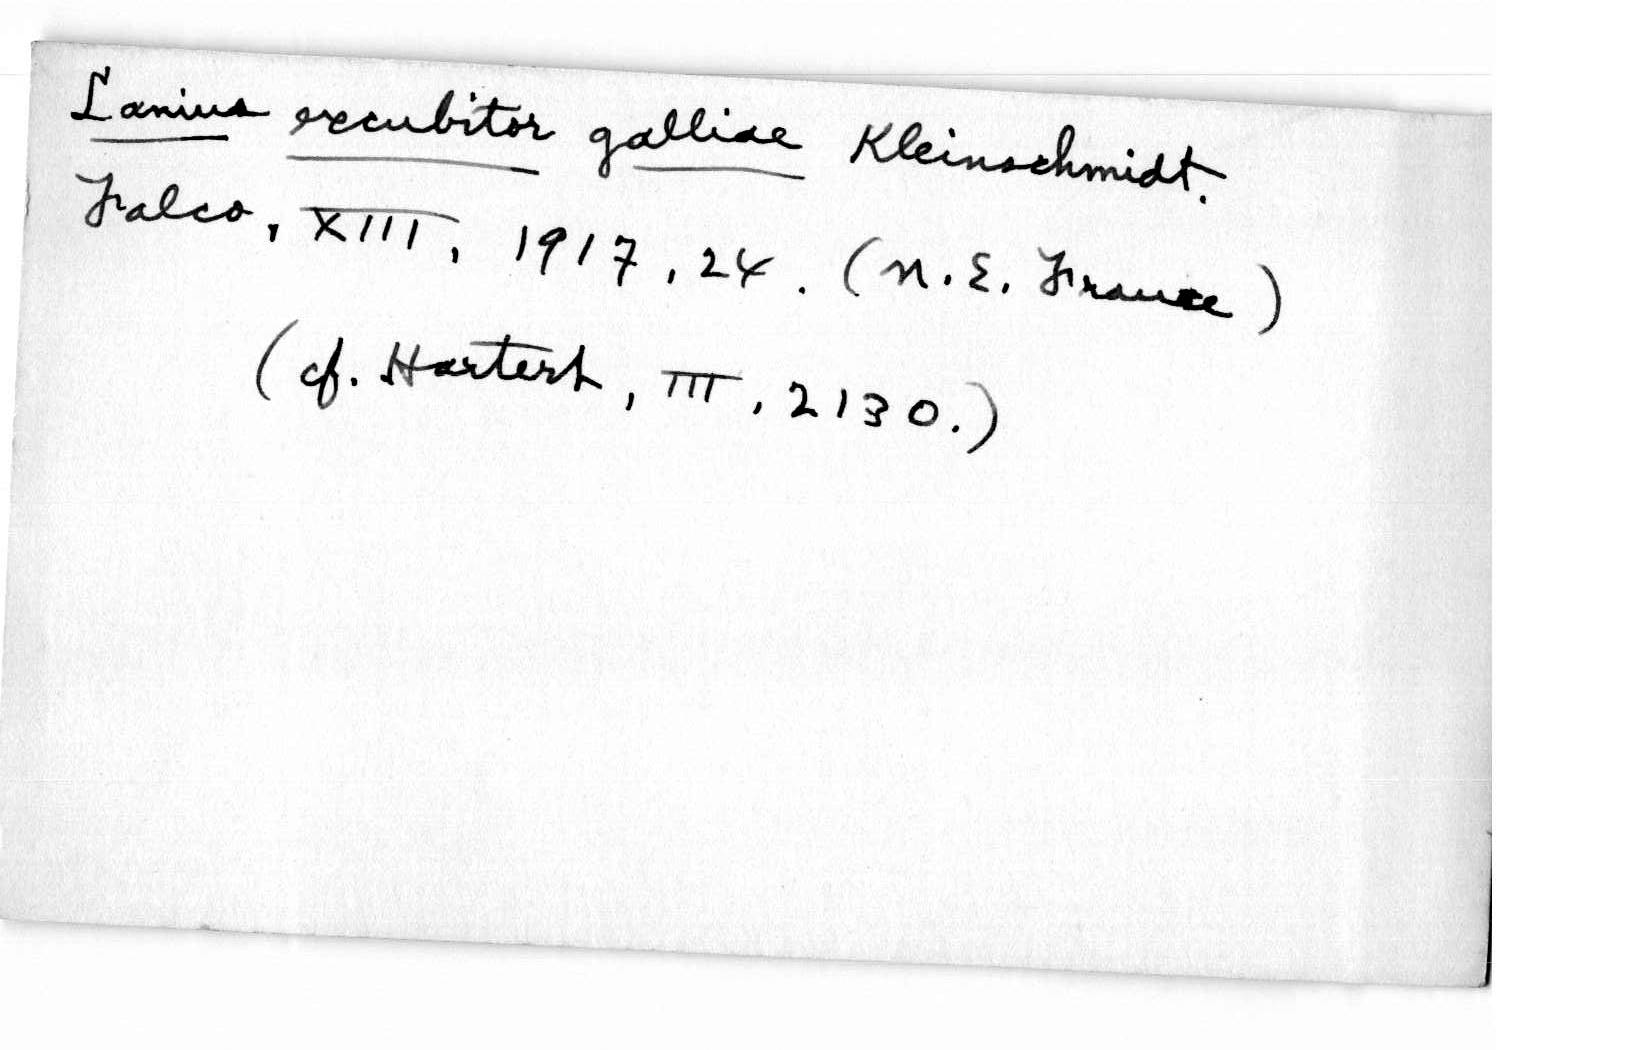 Lanius excubitor galliae Kleinschmidt.
Falco, XIII, 1917, 24. (N.E. France)
(cf. Hartert, III, 2130.)